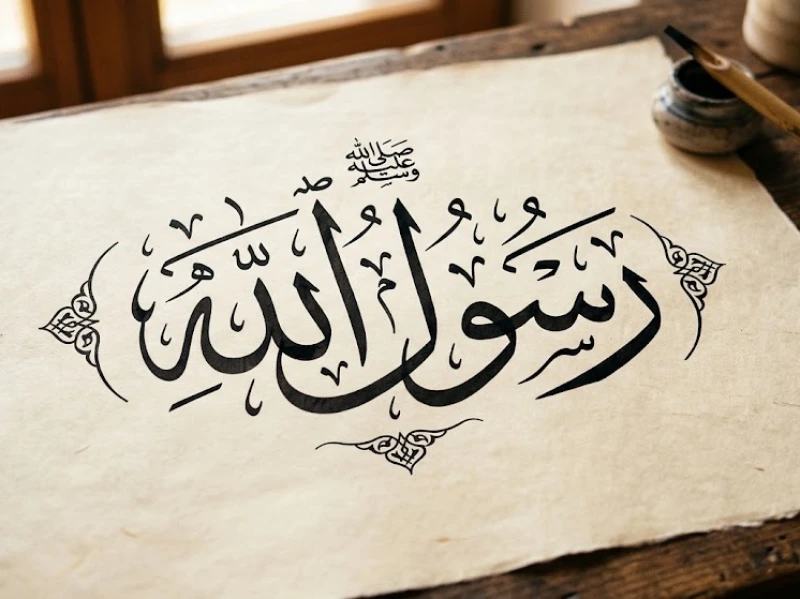 صَلَّى الله
عليه
وسلم
رَسُولُ اللَّهِ